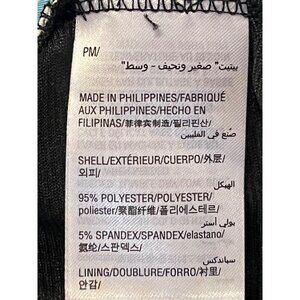 PM/
بيتيت" صغير ونحيف - وسط"
MADE IN PHILIPPINES/FABRIQUÉ
AUX PHILIPPINES/HECHO EN
FILIPINAS/菲律宾制造/필리핀산/
صنع في الفلبين
SHELL/EXTÉRIEUR/CUERPO/外层/
외피/
الهيكل
95% POLYESTER/POLYESTER/
poliester/聚酯纤维/폴리에스테르/
بولي أستر
5% SPANDEX/SPANDEX/elastano/
氨纶/스판덱스/
سباندكس
LINING/DOUBLURE/FORRO/衬里/
안감/